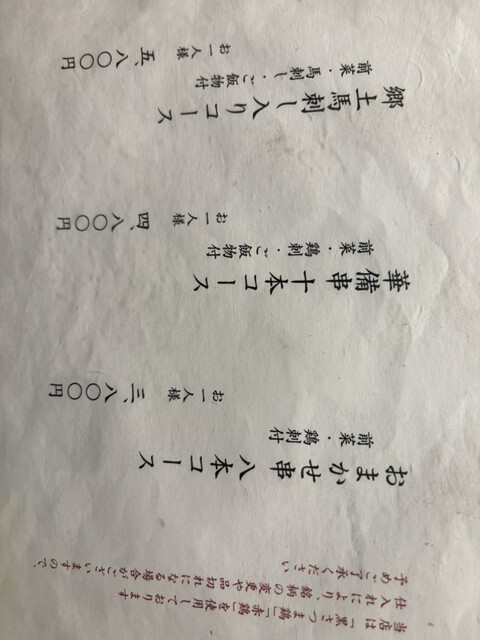 当店は「黒さつま鶏」「赤鶏」を使用しております
仕入れにより、銘柄の変更や品切れになる場合がございますので、
予めご了承ください
おまかせ串八本コース
前菜・鶏刺付
お一人様 三、八〇〇円
華備串十本コース
前菜・鶏刺・ご飯物付
お一人様 四、八〇〇円
郷土馬刺し入りコース
前菜・馬刺し・ご飯物付
お一人様 五、八〇〇円